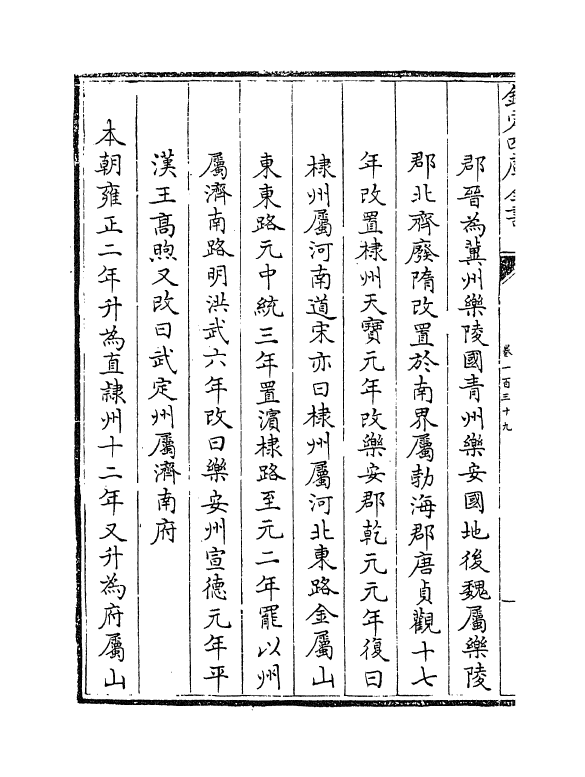 欽定四庫全書
卷一百三十九
郡晉為冀州樂陵國青州樂安國地後魏屬樂陵
郡北齊廢隋改置於南界屬勃海郡唐貞觀十七
年改置棣州天寶元年改樂安郡乾元元年復曰
棣州屬河南道宋亦曰棣州屬河北東路金屬山
東東路元中統三年置濱棣路至元二年罷以州
屬濟南路明洪武六年改曰樂安州宣德元年平
漢王高煦又改曰武定州屬濟南府
本朝雍正二年升為直隸州十二年又升為府屬山